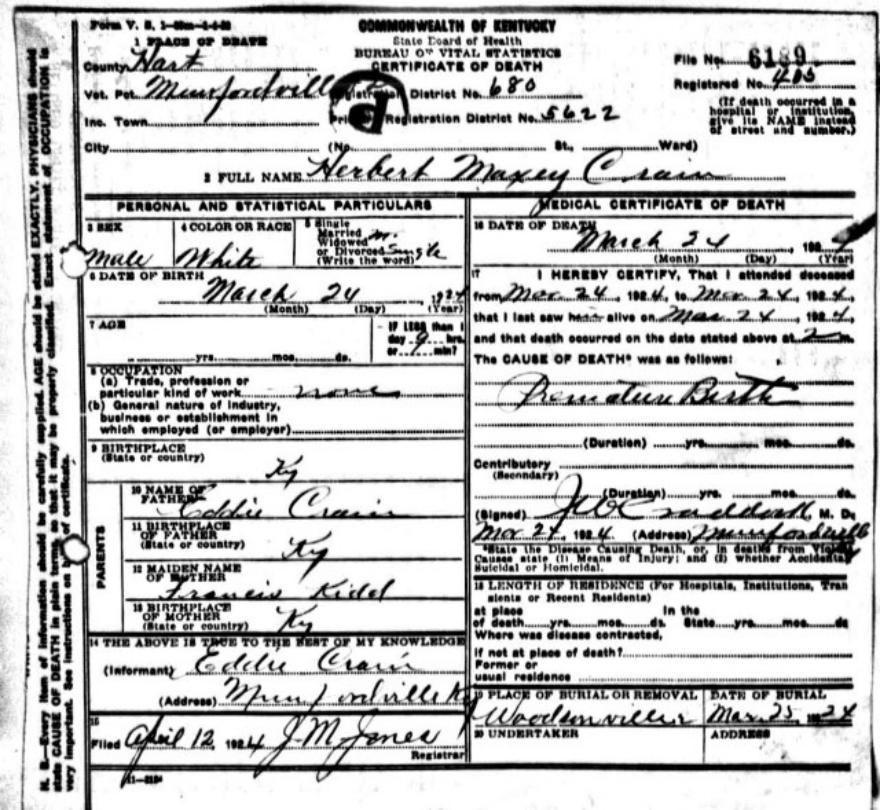 Form V. S. 1
COMMONWEALTH OF KENTUCKY
State Board of Health
BUREAU OF VITAL STATISTICS
CERTIFICATE OF DEATH
1 PLACE OF DEATH
County Hart
Vot. Pct. Munfordville
Registration District No. 680
Inc. Town
Primary Registration District No. 5622
City (No. St., Ward)
File No. 6189
Registered No. 405
(If death occurred in a
hospital or institution,
give its NAME instead
of street and number.)
2 FULL NAME Herbert Maxey Crain
PERSONAL AND STATISTICAL PARTICULARS
3 SEX
Male
4 COLOR OR RACE
White
5 Single
Married
Widowed
or Divorced Single
(Write the word)
6 DATE OF BIRTH
March 24, 1924
(Month) (Day) (Year)
7 AGE
yrs. mos. ds.
IF LESS than 1
day 9 hrs.
or min?
8 OCCUPATION
(a) Trade, profession or
particular kind of work none
(b) General nature of industry,
business or establishment in
which employed (or employer)
9 BIRTHPLACE
(State or country)
Ky
PARENTS
10 NAME OF
FATHER
Eddie Crain
11 BIRTHPLACE
OF FATHER
(State or country)
Ky
12 MAIDEN NAME
OF MOTHER
Francis Kidd
13 BIRTHPLACE
OF MOTHER
(State or country)
Ky
14 THE ABOVE IS TRUE TO THE BEST OF MY KNOWLEDGE
(Informant) Eddie Crain
(Address) Munfordville Ky
15
Filed April 12, 1924 J M Jones
Registrar
MEDICAL CERTIFICATE OF DEATH
16 DATE OF DEATH
March 24, 1924
(Month) (Day) (Year)
17 I HEREBY CERTIFY, That I attended deceased
from Mar 24, 1924, to Mar 24, 1924,
that I last saw alive on Mar 24, 1924,
and that death occurred on the date stated above at m.
The CAUSE OF DEATH* was as follows:
Premature Birth
(Duration) yrs. mos. ds.
Contributory
(Secondary)
(Duration) yrs. mos. ds.
(Signed) Craddock, M. D.
Mar 24, 1924 (Address) Munfordville
*State the Disease Causing Death, or, in deaths from Violent
Causes state (1) Means of Injury; and (2) whether Accidental,
Suicidal or Homicidal.
18 LENGTH OF RESIDENCE (For Hospitals, Institutions, Tran
sients or Recent Residents)
at place In the
of death yrs. mos. ds. State yrs. mos. ds
Where was disease contracted,
if not at place of death?
Former or
usual residence
19 PLACE OF BURIAL OR REMOVAL
Woodsonville
DATE OF BURIAL
Mar. 25, 1924
20 UNDERTAKER
ADDRESS
N. B.—Every item of information should be carefully supplied. AGE should be stated EXACTLY. PHYSICIANS should
state CAUSE OF DEATH in plain terms, so that it may be properly classified. Exact statement of OCCUPATION is
very important. See instructions on back of certificate.